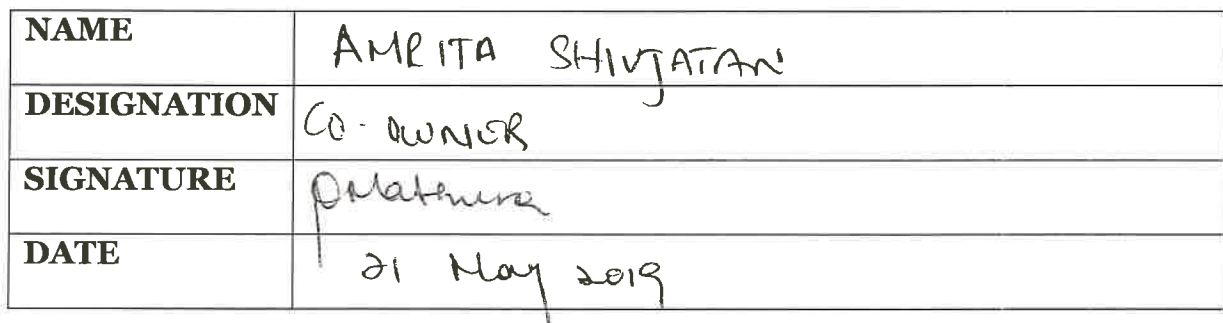 NAME AMRITA SHIVJATAN
DESIGNATION CO-OWNER
SIGNATURE
DATE 21 May 2019